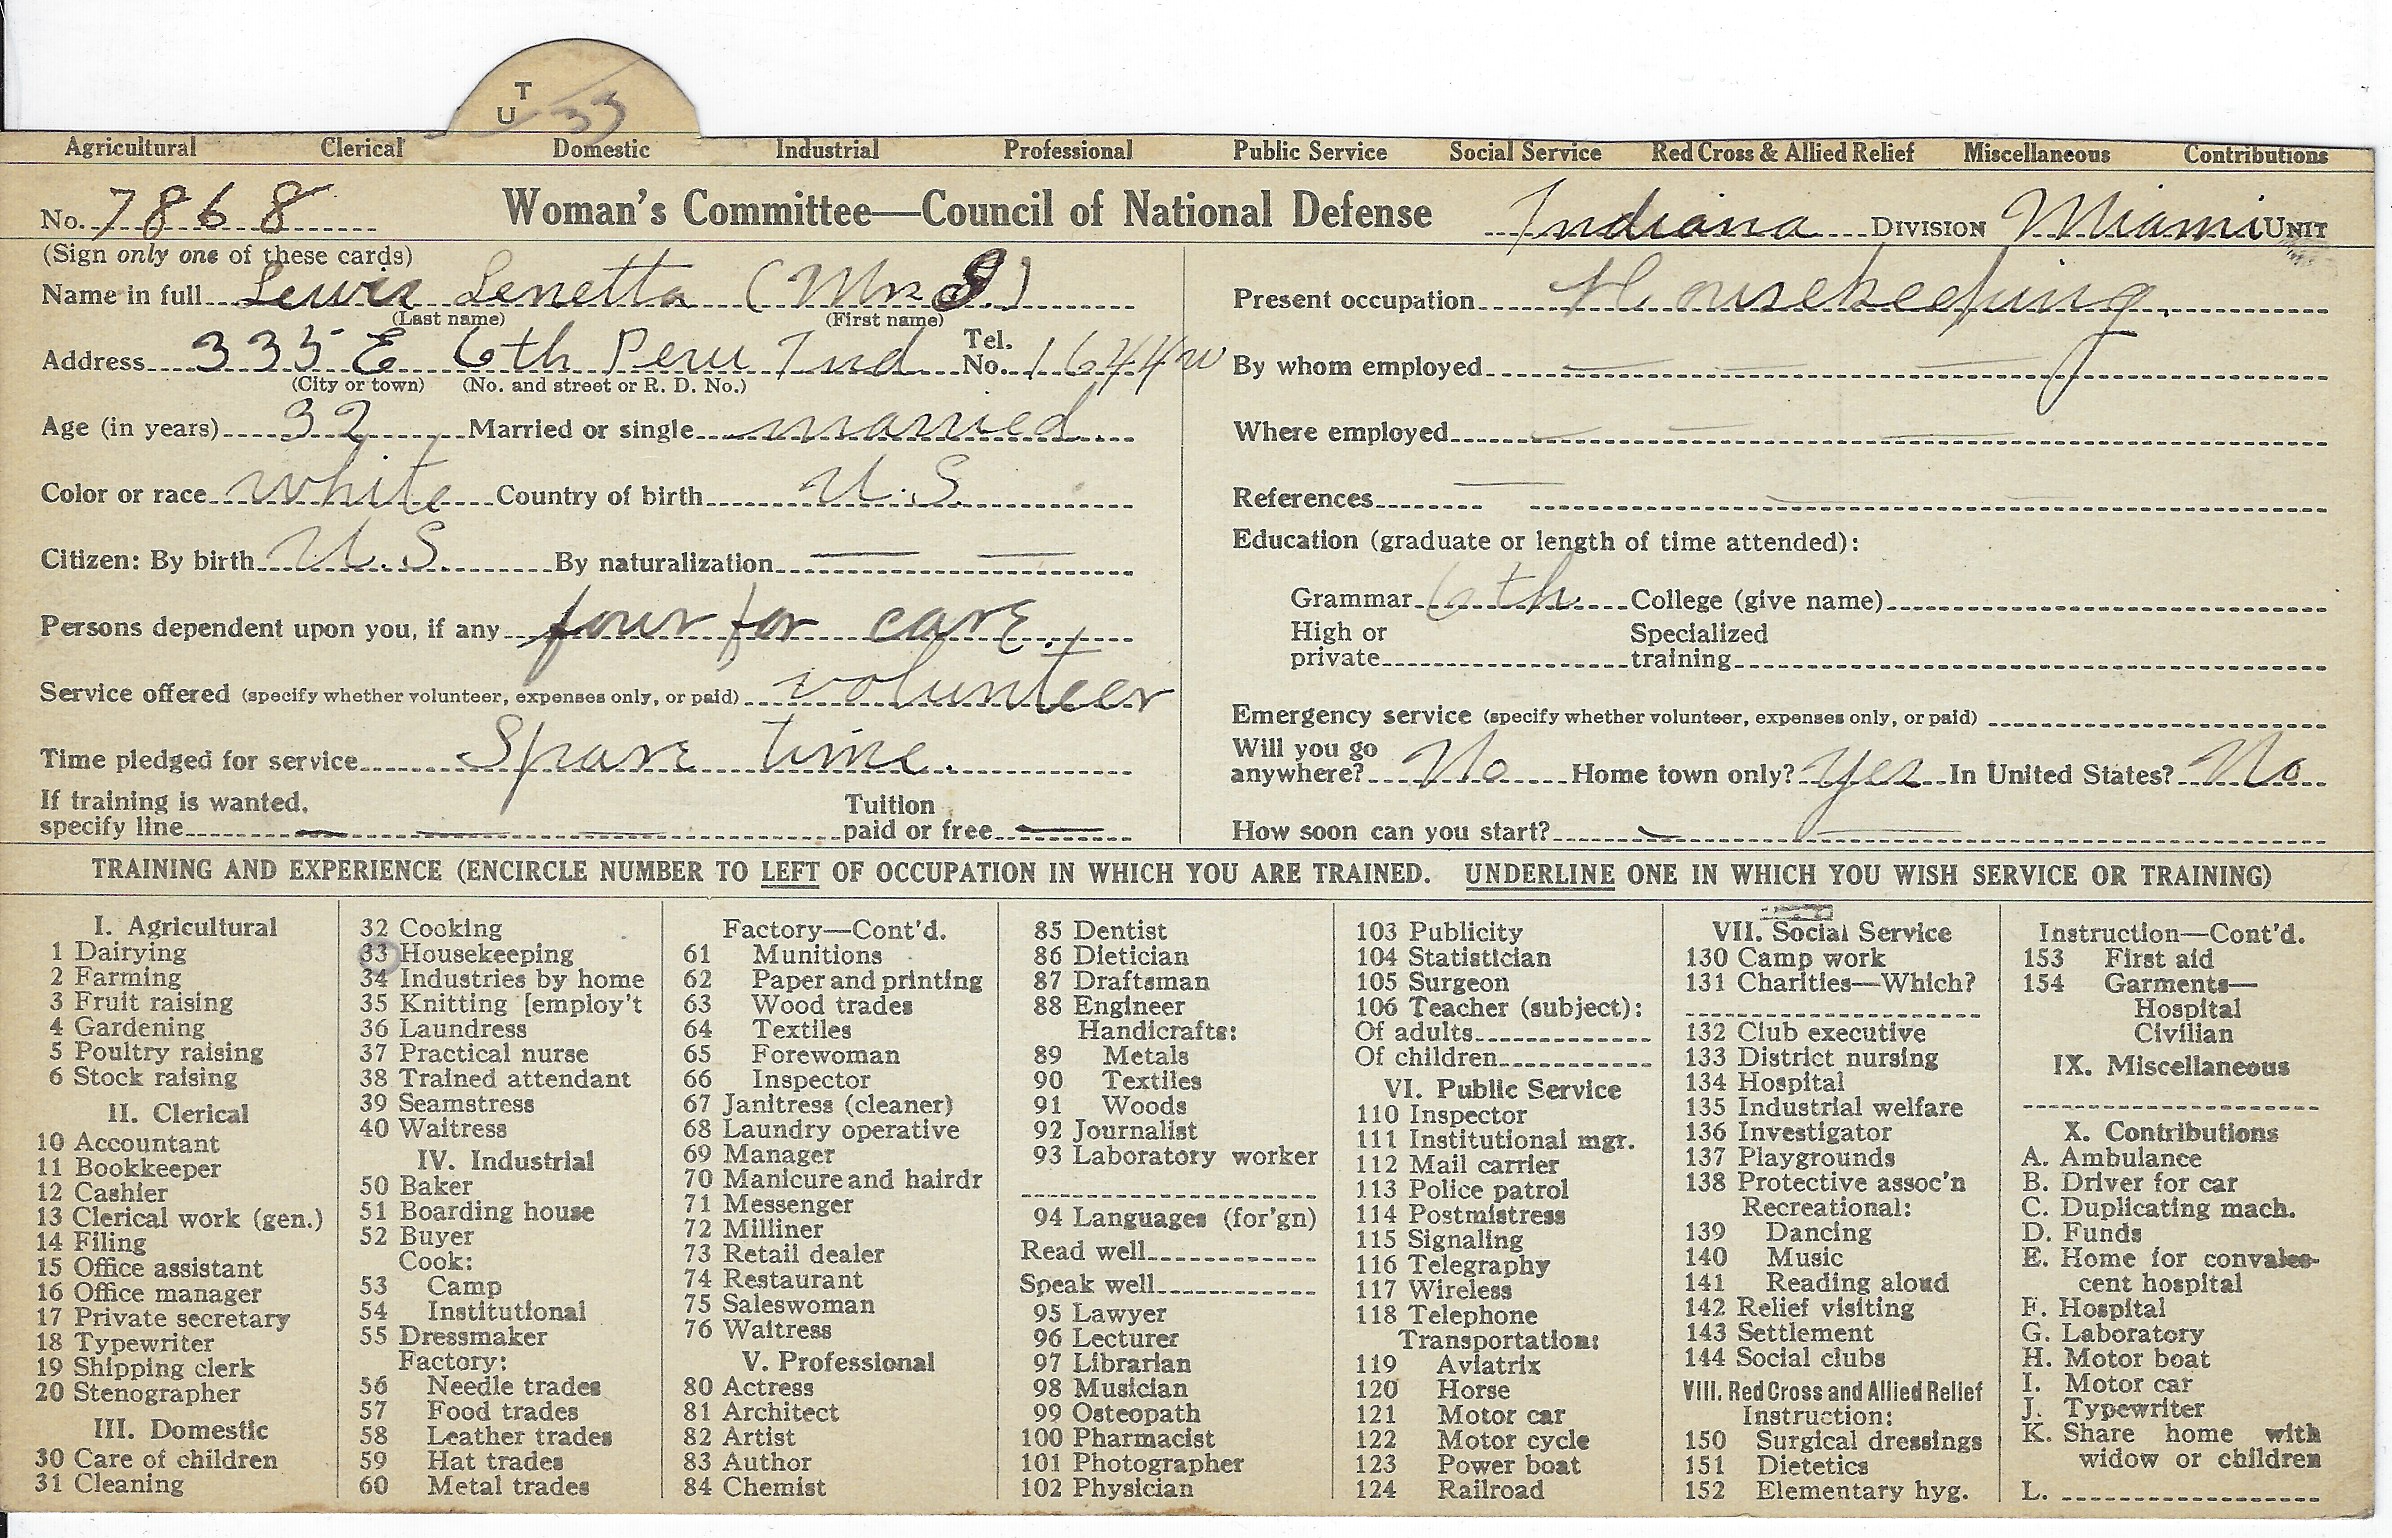 T
U 33
Agricultural Clerical Domestic Industrial Professional Public Service Social Service Red Cross & Allied Relief Miscellaneous Contributions
No. 7868 Woman's Committee—Council of National Defense Indiana DIVISION Miami UNIT
(Sign only one of these cards)
Name in full Lewis Lenetta (Mrs S)
(Last name) (First name)
Address 335 E 6th Peru Ind Tel. No. 1644w
(City or town) (No. and street or R. D. No.)
Age (in years) 32 Married or single married.
Color or race white Country of birth U.S.
Citizen: By birth U.S. By naturalization
Persons dependent upon you, if any four for care.
Service offered (specify whether volunteer, expenses only, or paid) volunteer
Time pledged for service Spare time.
If training is wanted, Tuition
specify line paid or free
Present occupation Housekeeping.
By whom employed
Where employed
References
Education (graduate or length of time attended):
Grammar 6th College (give name)
High or Specialized
private training
Emergency service (specify whether volunteer, expenses only, or paid)
Will you go
anywhere? No Home town only? Yes In United States? No
How soon can you start?
TRAINING AND EXPERIENCE (ENCIRCLE NUMBER TO LEFT OF OCCUPATION IN WHICH YOU ARE TRAINED. UNDERLINE ONE IN WHICH YOU WISH SERVICE OR TRAINING)
I. Agricultural
1 Dairying
2 Farming
3 Fruit raising
4 Gardening
5 Poultry raising
6 Stock raising
II. Clerical
10 Accountant
11 Bookkeeper
12 Cashier
13 Clerical work (gen.)
14 Filing
15 Office assistant
16 Office manager
17 Private secretary
18 Typewriter
19 Shipping clerk
20 Stenographer
III. Domestic
30 Care of children
31 Cleaning
32 Cooking
33 Housekeeping
34 Industries by home
35 Knitting [employ't
36 Laundress
37 Practical nurse
38 Trained attendant
39 Seamstress
40 Waitress
IV. Industrial
50 Baker
51 Boarding house
52 Buyer
Cook:
53 Camp
54 Institutional
55 Dressmaker
Factory:
56 Needle trades
57 Food trades
58 Leather trades
59 Hat trades
60 Metal trades
Factory—Cont'd.
61 Munitions
62 Paper and printing
63 Wood trades
64 Textiles
65 Forewoman
66 Inspector
67 Janitress (cleaner)
68 Laundry operative
69 Manager
70 Manicure and hairdr
71 Messenger
72 Milliner
73 Retail dealer
74 Restaurant
75 Saleswoman
76 Waitress
V. Professional
80 Actress
81 Architect
82 Artist
83 Author
84 Chemist
85 Dentist
86 Dietician
87 Draftsman
88 Engineer
Handicrafts:
89 Metals
90 Textiles
91 Woods
92 Journalist
93 Laboratory worker
94 Languages (for'gn)
Read well
Speak well
95 Lawyer
96 Lecturer
97 Librarian
98 Musician
99 Osteopath
100 Pharmacist
101 Photographer
102 Physician
103 Publicity
104 Statistician
105 Surgeon
106 Teacher (subject):
Of adults
Of children
VI. Public Service
110 Inspector
111 Institutional mgr.
112 Mail carrier
113 Police patrol
114 Postmistress
115 Signaling
116 Telegraphy
117 Wireless
118 Telephone
Transportation:
119 Aviatrix
120 Horse
121 Motor car
122 Motor cycle
123 Power boat
124 Railroad
VII. Social Service
130 Camp work
131 Charities—Which?
132 Club executive
133 District nursing
134 Hospital
135 Industrial welfare
136 Investigator
137 Playgrounds
138 Protective assoc'n
Recreational:
139 Dancing
140 Music
141 Reading aloud
142 Relief visiting
143 Settlement
144 Social clubs
VIII. Red Cross and Allied Relief
Instruction:
150 Surgical dressings
151 Dietetics
152 Elementary hyg.
Instruction—Cont'd.
153 First aid
154 Garments—
Hospital
Civilian
IX. Miscellaneous
X. Contributions
A. Ambulance
B. Driver for car
C. Duplicating mach.
D. Funds
E. Home for convales-
cent hospital
F. Hospital
G. Laboratory
H. Motor boat
I. Motor car
J. Typewriter
K. Share home with
widow or children
L.